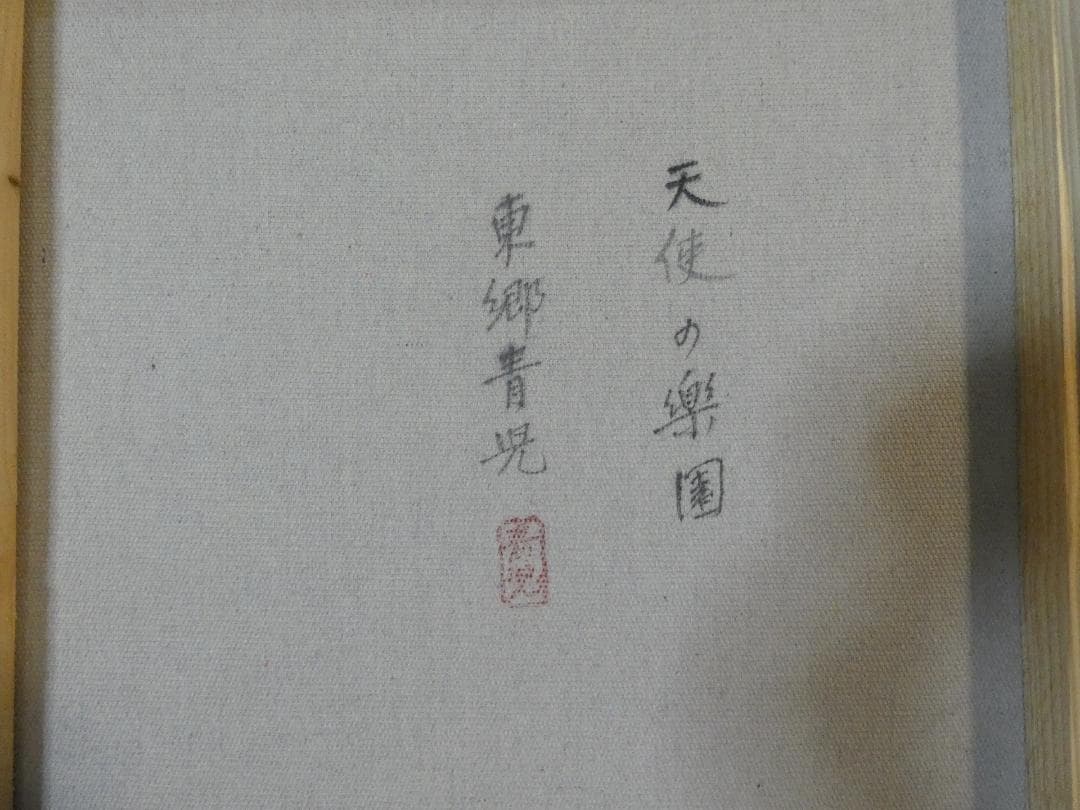 天使の樂園
東郷青児
青児